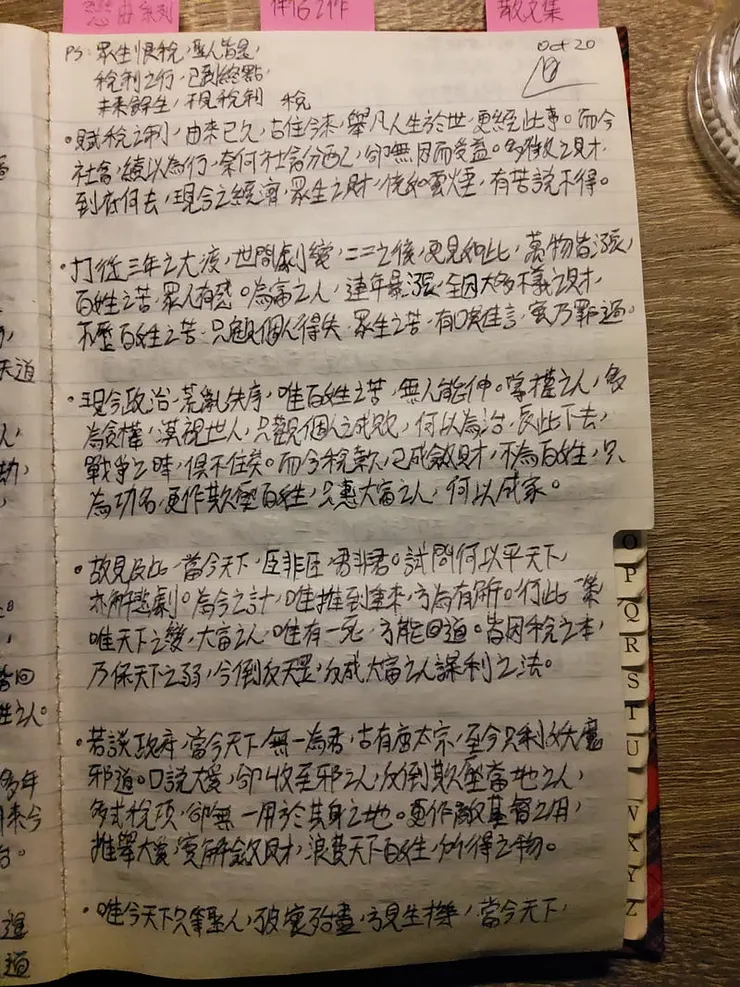 散文集
Oct 20
PS: 眾生恨稅,聖人皆惡,
稅制之行,已到終點,
未來餘生,不見稅制 稅
• 賦稅之制,由來已久,古往今來,舉凡人生於世,更經此事。而今
社會,以為行,奈何社會分配,卻無因而受益。多徵之財,
到底何去,現今之經濟,眾生之財,恍如雲煙,有苦說不得。
• 打從三年之大渡,世間劇變,二二之後,更見如此,萬物皆漲,
百姓之苦,眾人有惑。為富之人,連年暴漲,全因大多不義之財,
不壓百姓之苦,只觀個人得失,眾生之苦,有口難言,實乃罪過。
• 現今政治,荒亂失序,唯百姓之苦,無人能伸。掌權之人,多
為貪權,漠視世人,只觀個人之成敗,何以為治,長此下去,
戰爭之時,俱不住矣。而今稅款,已成斂財,不為百姓,只
為功名,更作欺壓百姓,只惠大富之人,何以成家。
• 故見長此,當今天下,臣非臣,君非君。試問何以平天下,
亦解悲劇。為今之計,唯推到重來,方為有所。何此一策
唯天下之變,大富之人,唯有一死,方能回道。皆因稅之本,
乃保天下之弱,今倒反天罡,反成大富之人謀利之法。
• 若談政府,當今天下,無一為君,古有唐太宗,至今只利妖魔
邪道。口說大愛,卻收至邪之人,反倒欺壓當地之人,
多式稅項,卻無一用於其身之地。更作敵基督之用,
推舉大愛,實解斂財,浪費天下百姓,所得之物。
• 唯今天下只等聖人,破壞殆盡,方見生機,當今天下,
O
P
Q
R
S
T
U
V
W
X
Y
Z
天道
人,
劫,
姓之人。
多年
來今
道
道